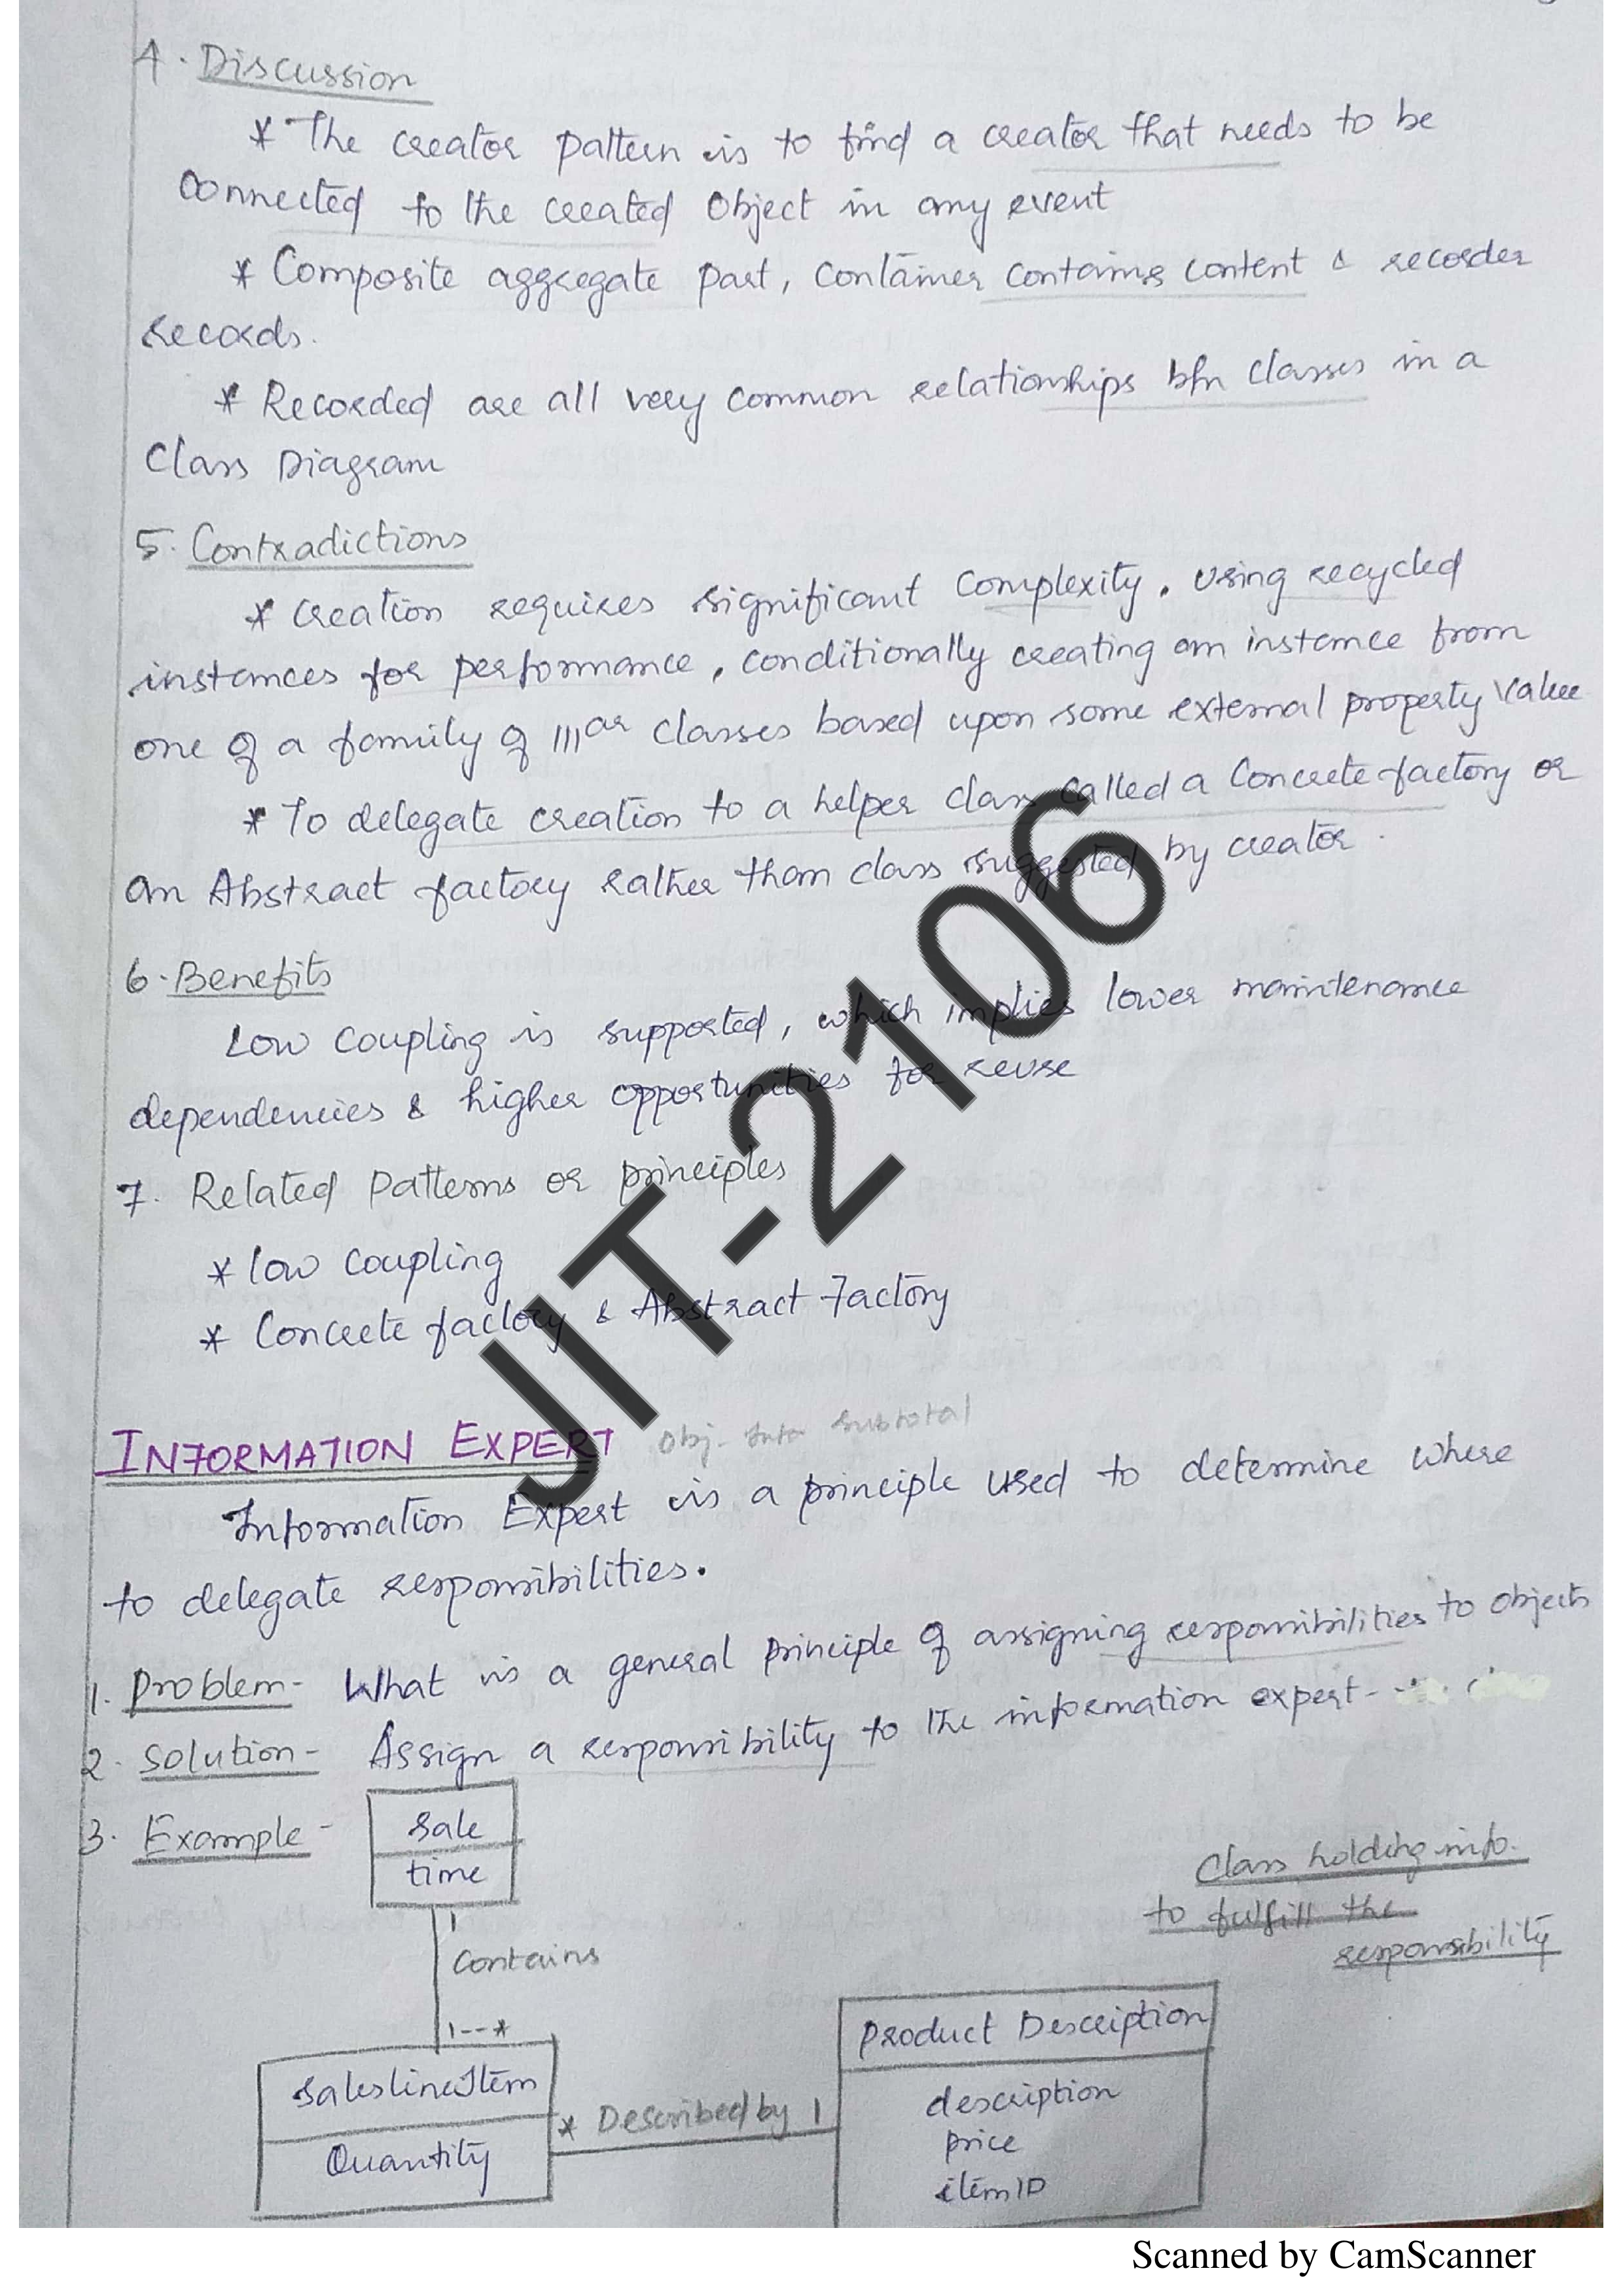 4. Discussion
* The creator pattern is to find a creator that needs to be
connected to the created Object in any event
* Composite aggregate part, Container contains content & recorder
records.
* Recorded are all very common relationships b/n classes in a
Class Diagram
5. Contradictions
* Creation requires significant complexity. Using recycled
instances for performance, conditionally creating an instance from
one of a family of lllar classes based upon some external property value
* To delegate creation to a helper class called a Concrete factory or
an Abstract factory rather than class suggested by creator.
6. Benefits
Low coupling is supported, which implies lower maintenance
dependencies & higher opportunities for reuse
7. Related Patterns or principles
* low coupling
* Concrete factory & Abstract Factory
JIT-2106
INFORMATION EXPERT Obj. Into Subtotal
Information Expert is a principle used to determine where
to delegate responsibilities.
1. Problem- What is a general principle of assigning responsibilities to objects
2. Solution- Assign a responsibility to the information expert-
3. Example-
Sale
time
Class holding info.
to fulfill the
responsibility
1
Contains
1--*
SaleslineItem
Quantity
* Described by 1
Product Description
description
price
itemID
Scanned by CamScanner